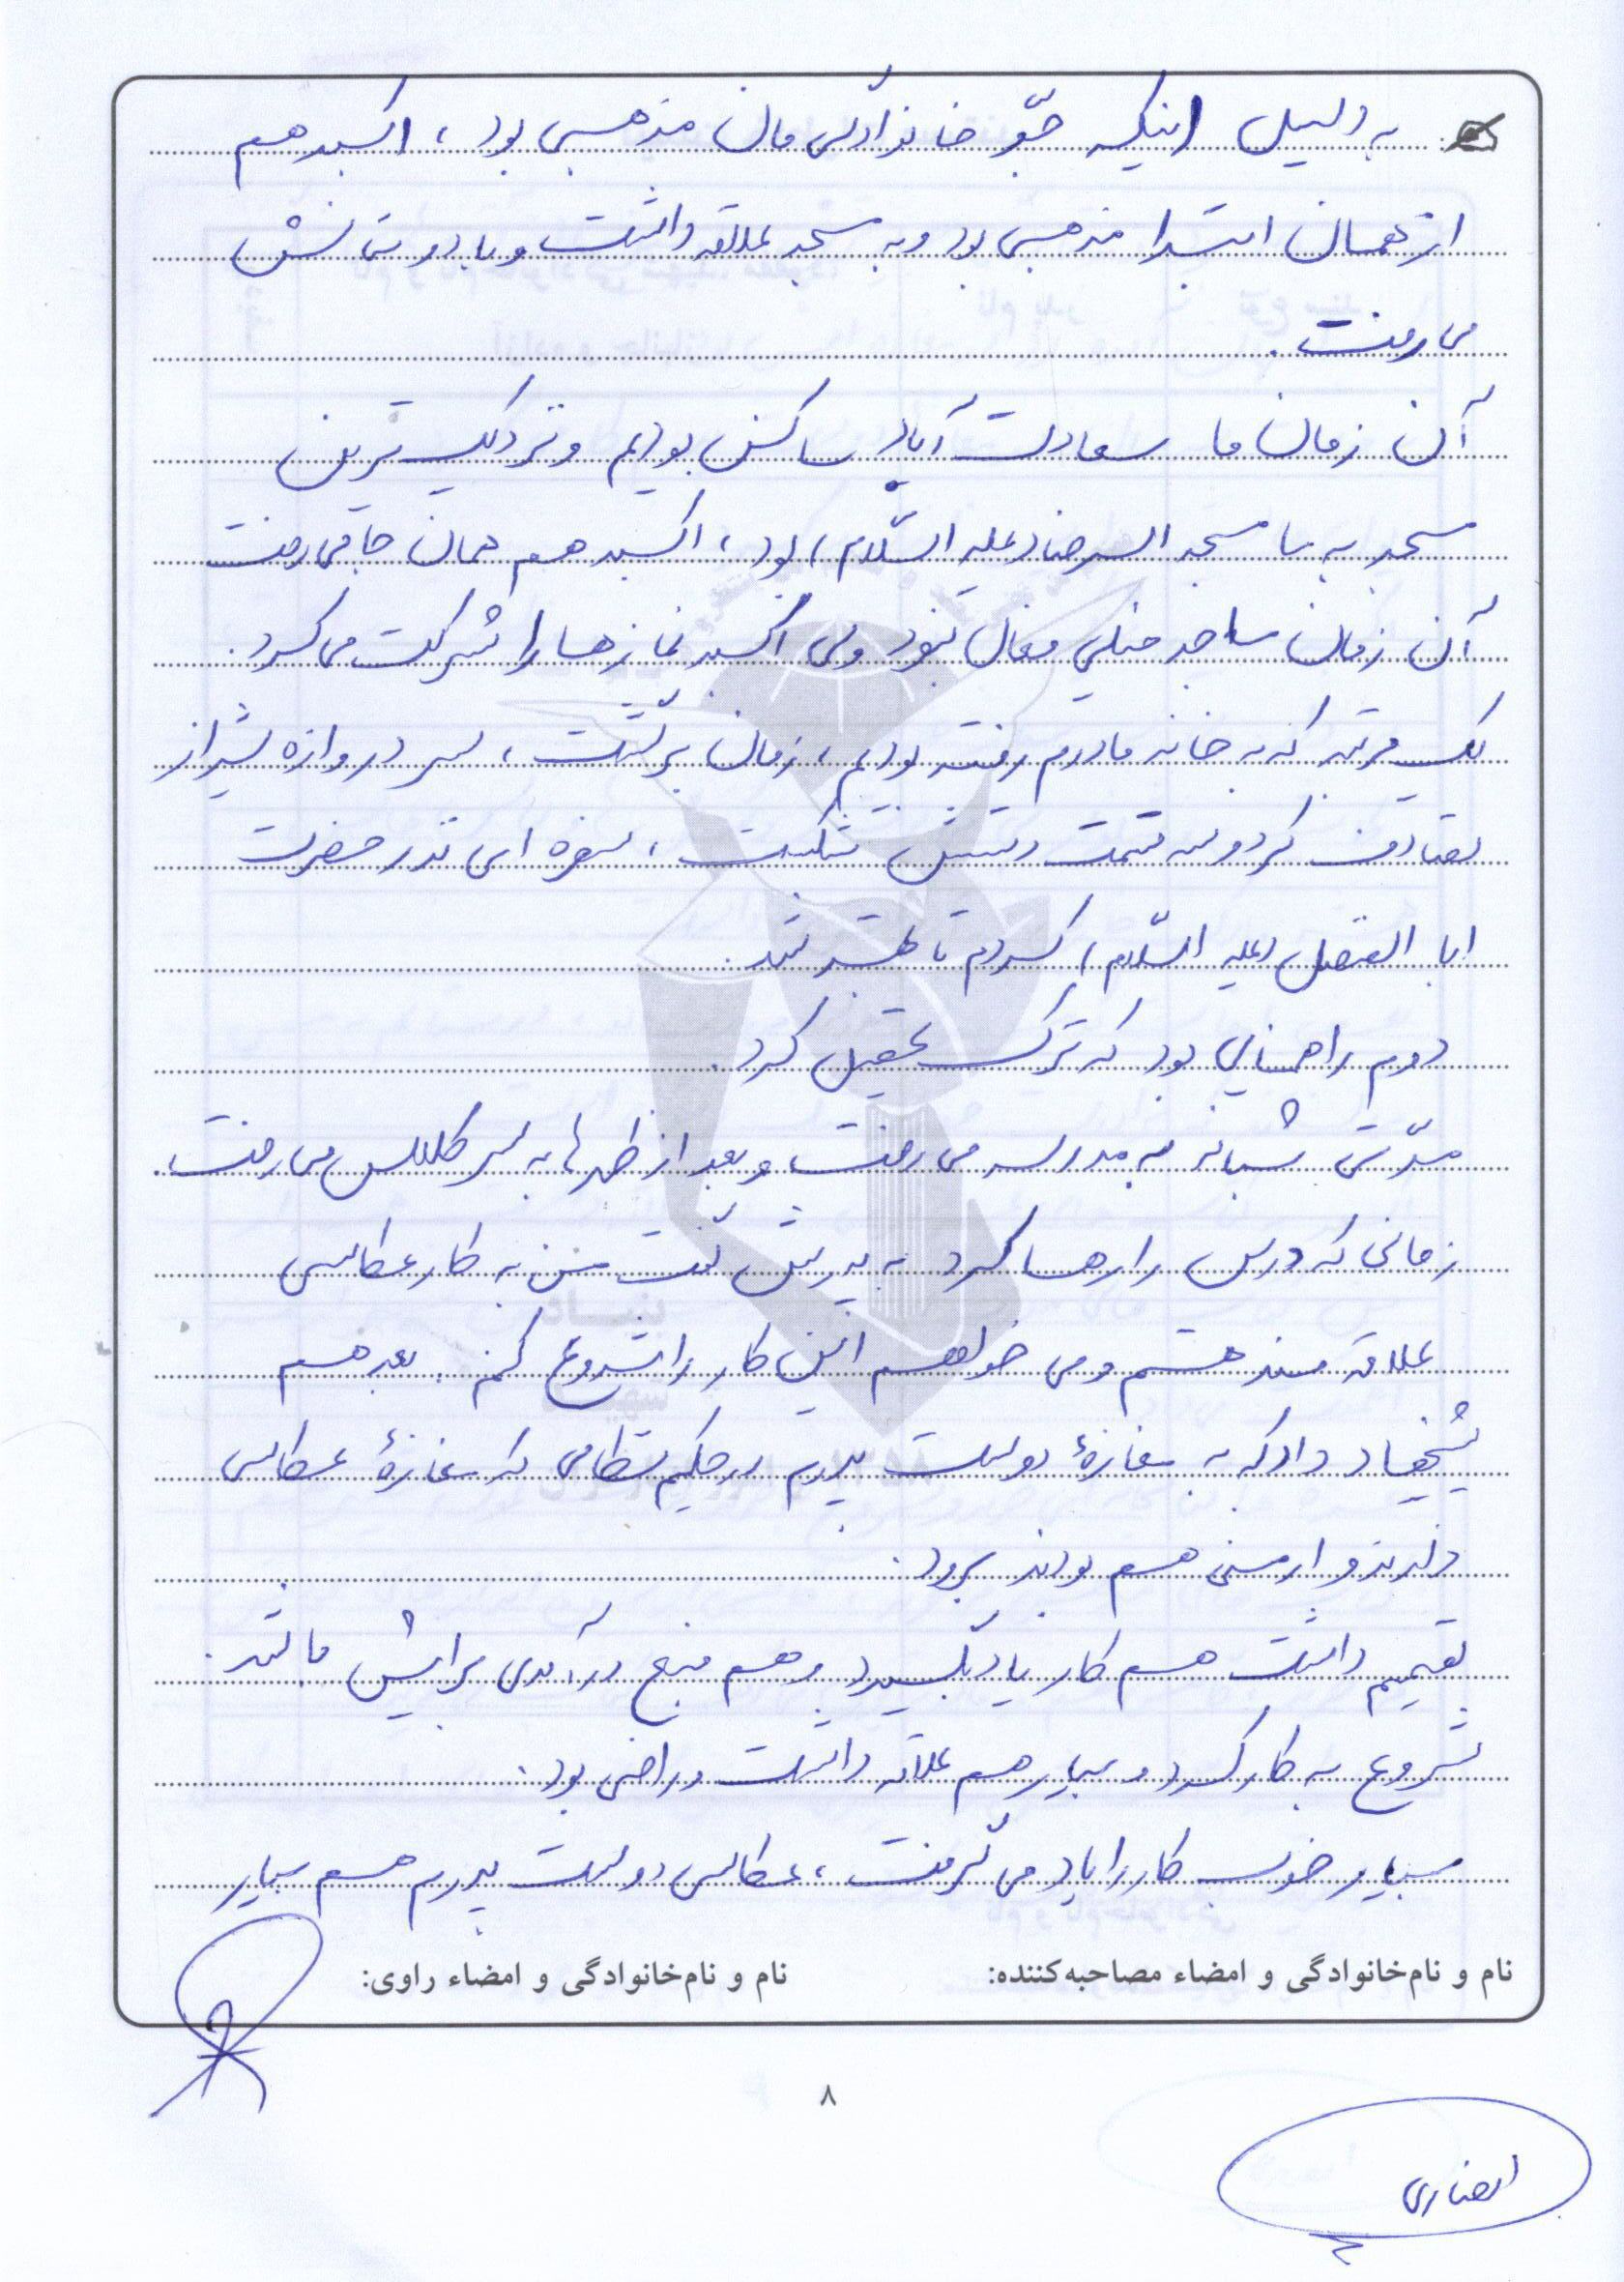 به دلیل اینکه جوّ خانوادگی مان مذهبی بود، اکبر هم
از همان ابتدا مذهبی بود و به مسجد علاقه داشت و با دوستانش
می رفت.
آن زمان ما سعادت آباد ساکن بودیم و نزدیک ترین
مسجد به ما مسجد الرضا (علیه السّلام) بود، اکبر هم همان جا می رفت
آن زمان مساجد خیلی فعال نبود ولی اکبر نمازها را شرکت می کرد.
یک مرتبه که به خانه مادرم رفته بودیم، زمان برگشت، سر دروازه شیراز
تصادف کرد و سه قسمت دستش شکست، سفره ای نذر حضرت
ابا الفضل (علیه السّلام) کردم تا بهتر شد.
دوم راهنمایی بود که ترک تحصیل کرد.
مدّتی شبانه به مدرسه می رفت و بعد از ظهرها به سر کلاس می رفت.
زمانی که درس را رها کرد به پدرش گفت من به کار عکاسی
علاقه مند هستم و می خواهم این کار را شروع کنم. بعد هم
پیشنهاد داد که به مغازهٔ دوست پدرم در حکیم نظامی که مغازهٔ عکاسی
دارند و ارمنی هم بودند برود.
تصمیم داشت هم کار یاد بگیرد و هم منبع درآمدی برایش باشد.
شروع به کار کرد و بسیار هم علاقه داشت و راضی بود.
بسیار خوب کار را یاد می گرفت، عکاسی دوست پدرم هم بسیار
نام و نام‌خانوادگی و امضاء مصاحبه‌کننده:
نام و نام‌خانوادگی و امضاء راوی:
۸
انصاری